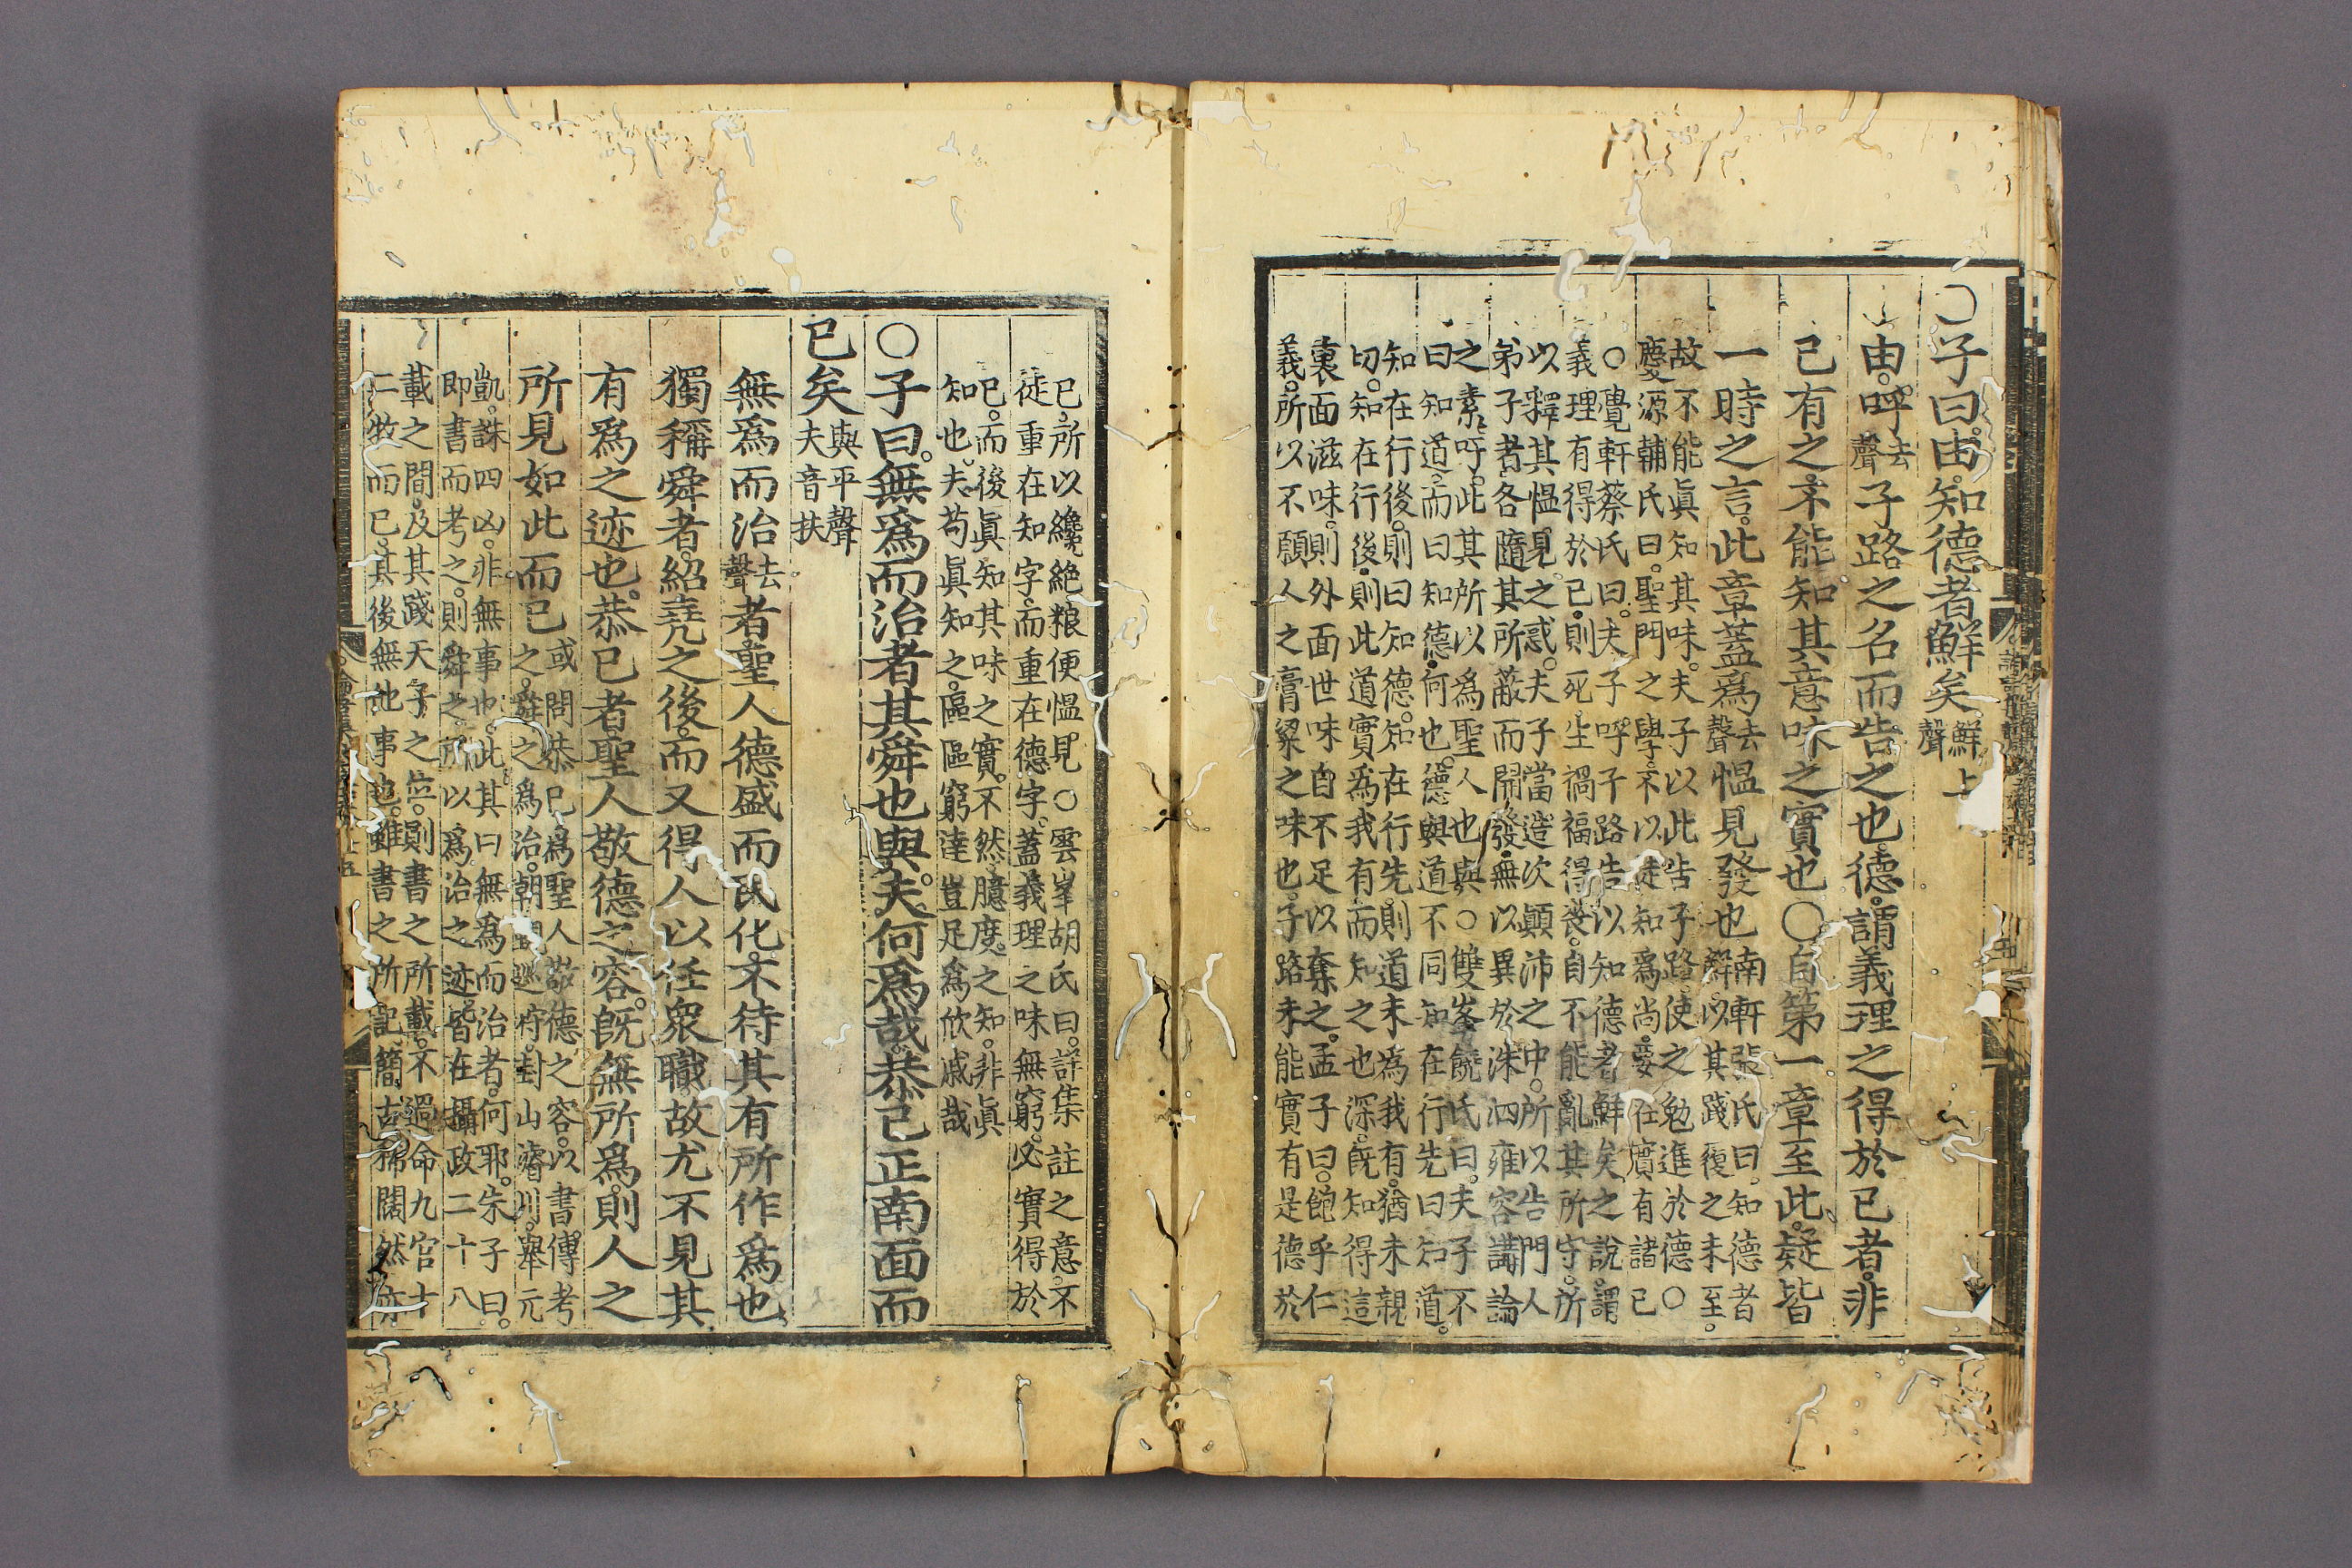 ○子曰由知德者鮮矣鮮上聲
由呼去聲子路之名而告之也德謂義理之得於己者非
己有之不能知其意味之實也○自第一章至此疑皆
一時之言此章蓋爲去聲慍見發也南軒張氏曰知德者
鮮以其踐履之未至
故不能眞知其味夫子以此告子路使之勉進於德○
慶源輔氏曰聖門之學不以徒知爲尚要在實有諸己
○覺軒蔡氏曰夫子呼子路告以知德者鮮矣之說謂
義理有得於己則死生禍福得喪自不能亂其所守所
以釋其慍見之惑夫子當造次顚沛之中所以告門人
弟子者各隨其所蔽而開發無以異於洙泗雍容講論
之素吁此其所以爲聖人也與○雙峯饒氏曰夫子不
曰知道而曰知德何也德與道不同知在行先曰知道
知在行後則曰知德知在行先則道未爲我有猶未親
切知在行後則此道實爲我有而知之也深旣知得這
裏面滋味則外面世味自不足以奪之孟子曰飽乎仁
義所以不願人之膏粱之味也子路未能實有是德於
己所以纔絶粮便慍見○雲峯胡氏曰詳集註之意不
徒重在知字而重在德字蓋義理之味無窮必實得於
己而後眞知其味之實不然臆度之知非眞
知也夫苟眞知之區區窮達豈足爲欣戚哉
○子曰無爲而治者其舜也與夫何爲哉恭己正南面而
已矣與平聲夫音扶
無爲而治去聲者聖人德盛而民化不待其有所作爲也
獨稱舜者紹堯之後而又得人以任衆職故尤不見其
有爲之迹也恭己者聖人敬德之容旣無所爲則人之
所見如此而已或問恭己爲聖人敬德之容以書傳考
之舜之爲治朝覲巡狩封山濬川舉元
凱誅四凶非無事也此其曰無爲而治者何耶朱子曰
即書而考之則舜之所以爲治之迹皆在攝政二十八
載之間及其踐天子之位則書之所載不過命九官十
二牧而已其後無他事也雖書之所記簡古稀闊然亦